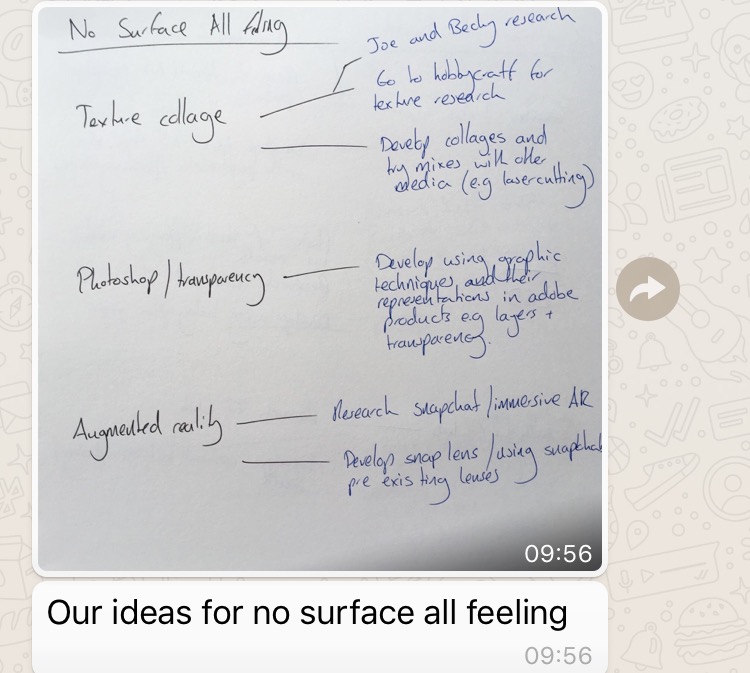 No Surface All feeling
Joe and Becky research
Go to hobbycraft for
texture research
Texture collage
Develop collages and
try mixes with other
media (e.g lasercutting)
Photoshop/transparency
Develop using graphic
techniques and their
representations in adobe
products e.g layers +
transparency.
Augmented reality
Research snapchat/immersive AR
Develop snap lens/using snapchat
pre existing lenses
09:56
Our ideas for no surface all feeling
09:56